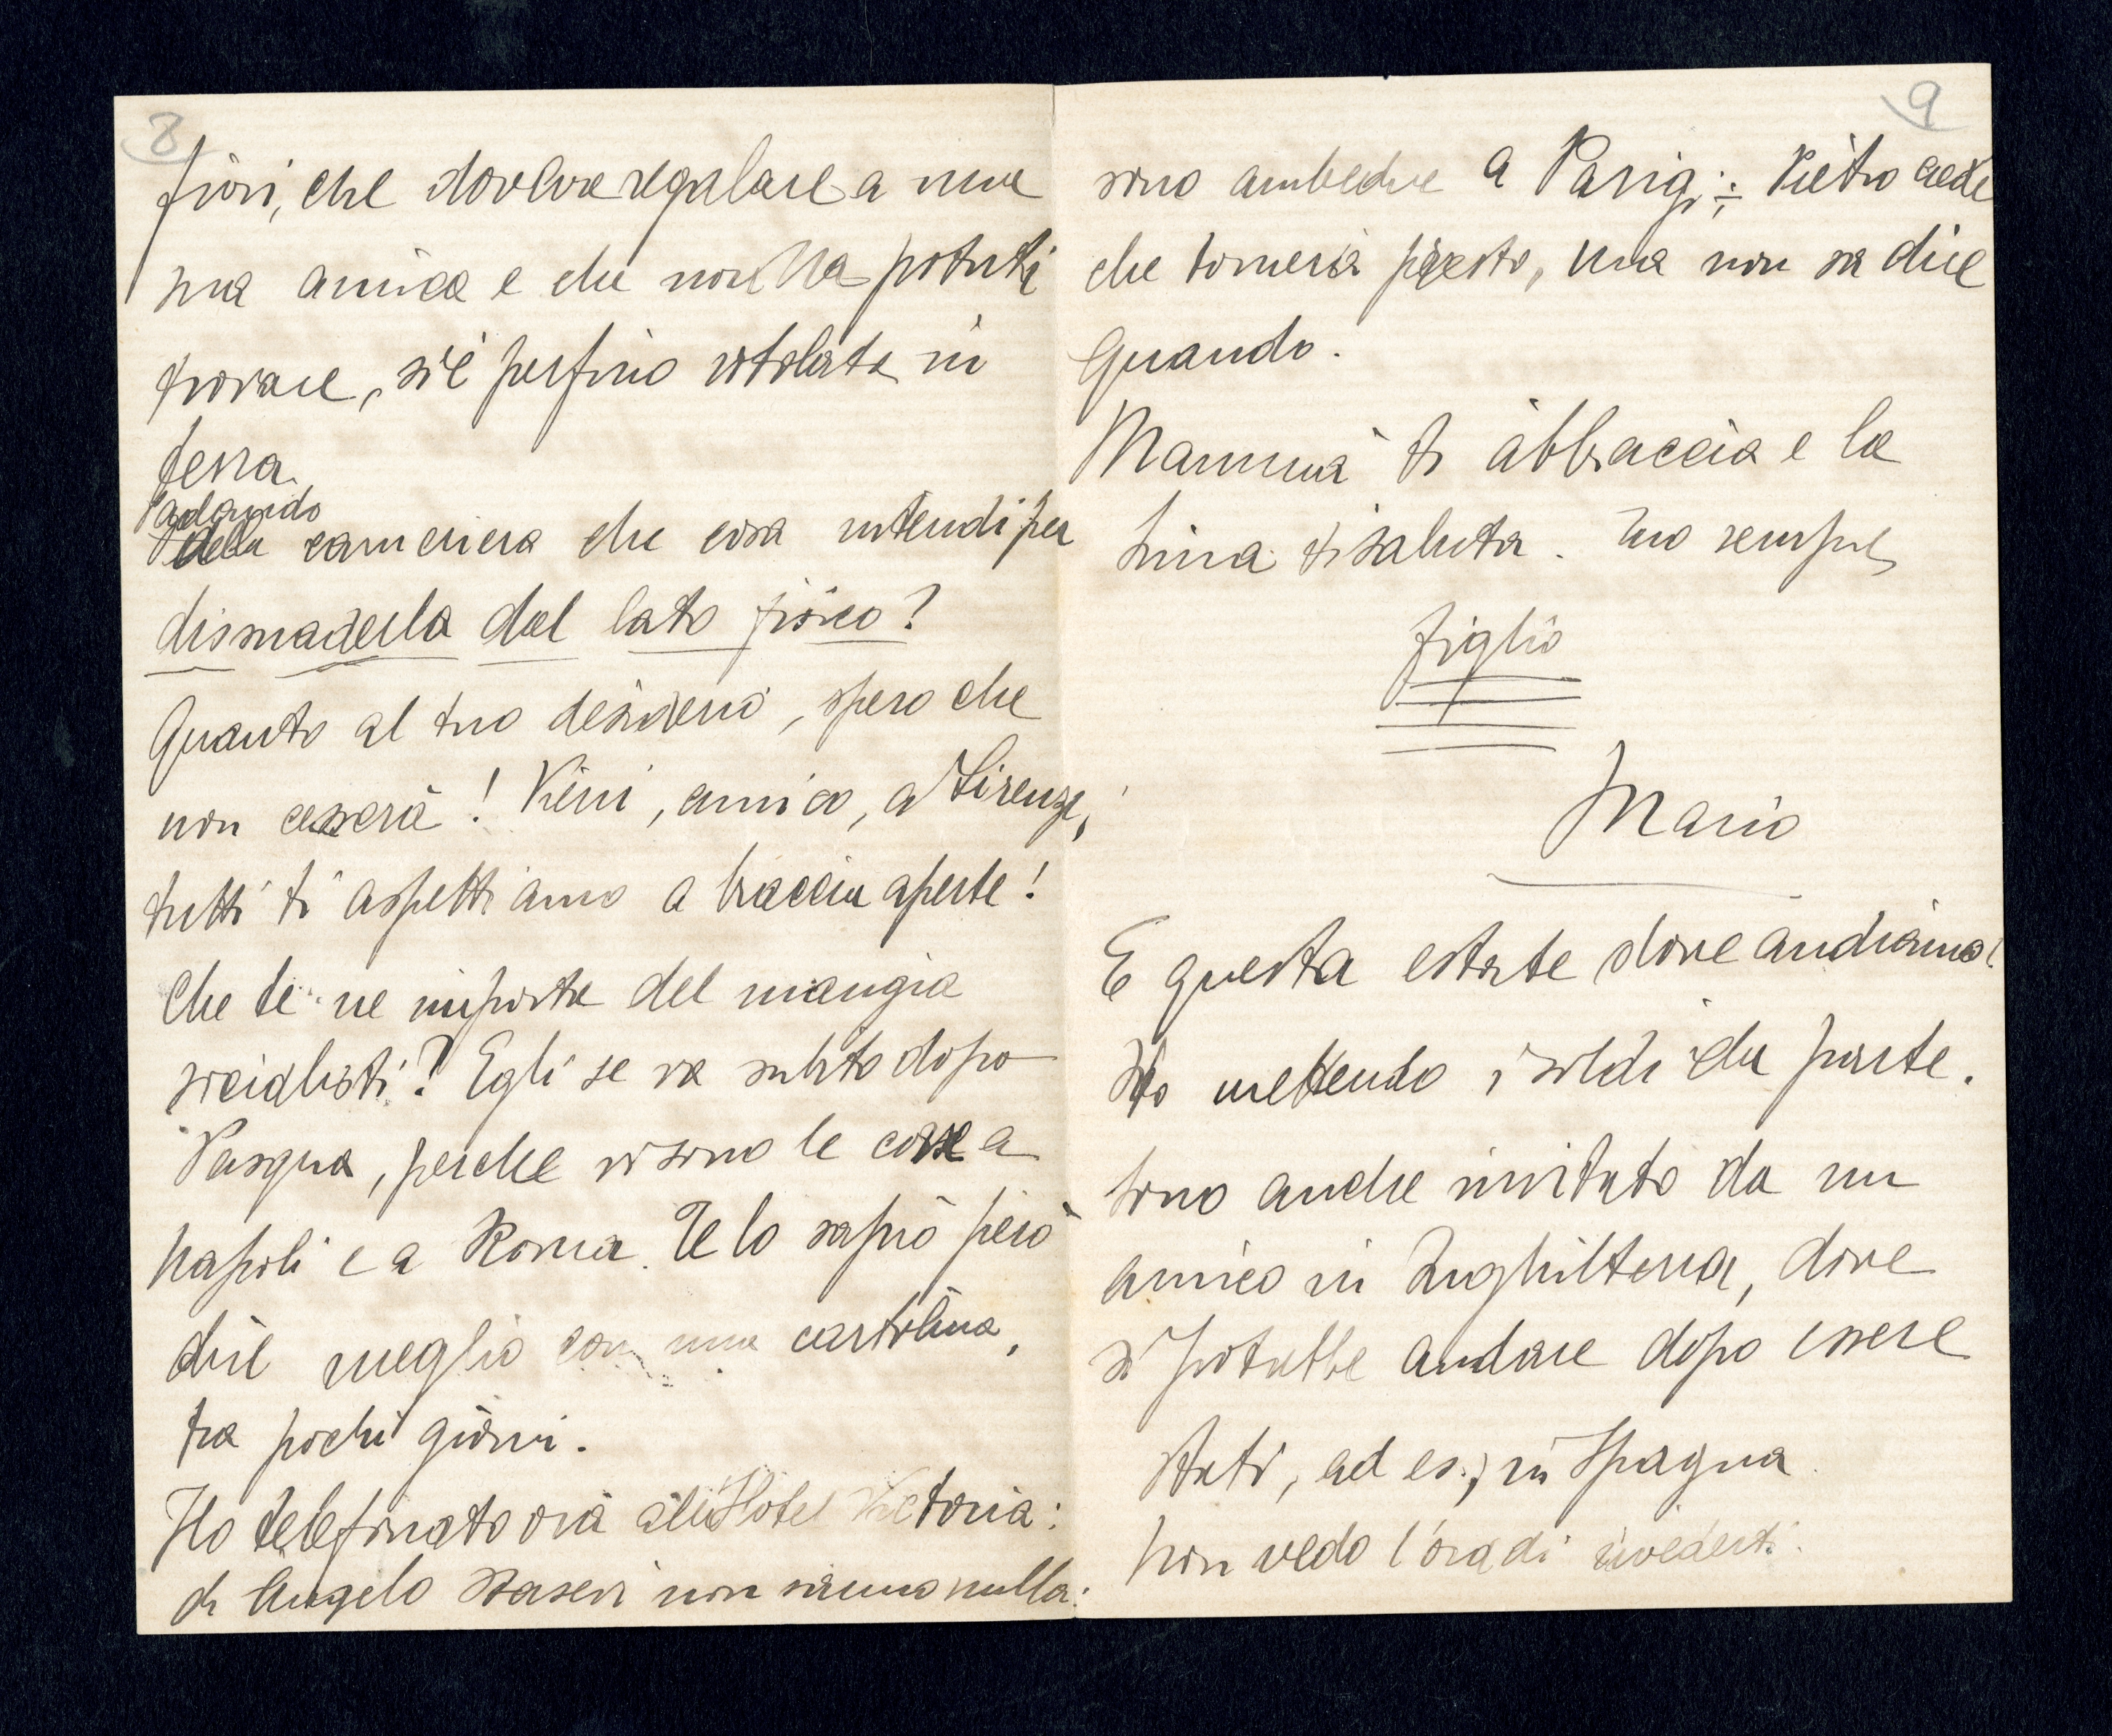 8
fiori, che doveva regalare a una
sua amica e che non ha potuti
trovare, s'è perfino rotolata in
terra.
Parlando
della cameriera che cosa intendi per
dissuaderla dal lato fisico?
Quanto al tuo desiderio, spero che
non cesserà! Vieni, amico, a Firenze,
tutti ti aspettiamo a braccia aperte!
Che te ne importa del mangia
socialisti? Egli se va subito dopo
Pasqua, perche vi sono le corse a
Napoli e a Roma. Te lo saprò però
dire meglio con una cartolina,
tra pochi giorni.
Ho telefonato ora all'Hotel Victoria:
di Angelo non sanno nulla:
9
sono ambedue a Parigi; Pietro crede
che tornerà presto, ma non sa dire
quando.
Mammà ti abbraccia e la
ti saluta. Tuo sempre
figlio
Mario
E questa estate dove andiamo?
Sto mettendo i soldi da parte.
Sono anche invitato da un
amico in Inghilterra, dove
si potrebbe andare dopo essere
stati, ad es., in Spagna.
Non vedo l'ora di rivederti.